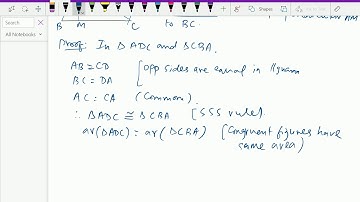 Search
All Notebooks
B M C to BC.
Proof: In ΔADC and ΔCBA,
AB = CD [opp sides are equal in llgram
BC = DA
AC = CA (Common).
∴ ΔADC ≅ ΔCBA [SSS rule].
ar(ΔADC) = ar(ΔCBA) [Congruent figures have
same area)